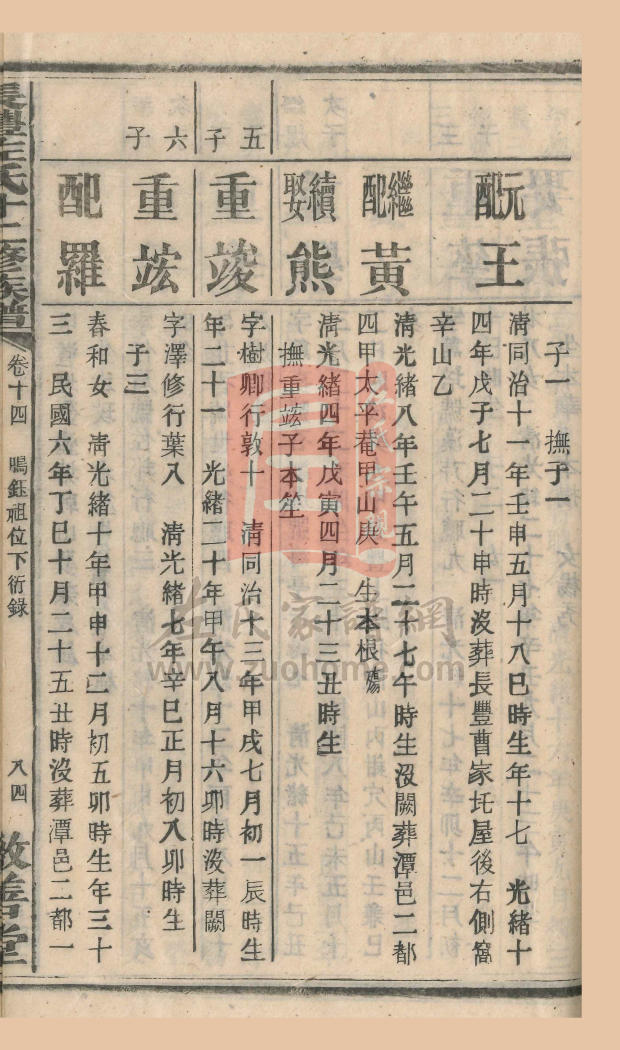 子一　撫子一
元配王
清同治十一年壬申五月十八巳時生年十七　光緒十
四年戊子七月二十申時沒葬長豐曹家圫屋後右側窩
辛山乙
繼配黃
清光緒八年壬午五月二十七午時生沒闕葬潭邑二都
四甲太平菴甲山庚　生本根殤
續娶熊
清光緒四年戊寅四月二十三丑時生
撫重䇏子本笙
五子
重竣
字樹卿行敦十　清同治十三年甲戌七月初一辰時生
年二十一　光緒二十年甲午八月十六卯時沒葬闕
六子
重䇏
字澤修行葉八　清光緒七年辛巳正月初八卯時生
子三
配羅
春和女　清光緒十年甲申十二月初五卯時生年三十
三　民國六年丁巳十月二十五丑時沒葬潭邑二都一
長豐左氏十二修族譜
卷十四　鳴鈺祖位下衍錄
八四
敦善堂
左氏家譜網
www.zuohome.com